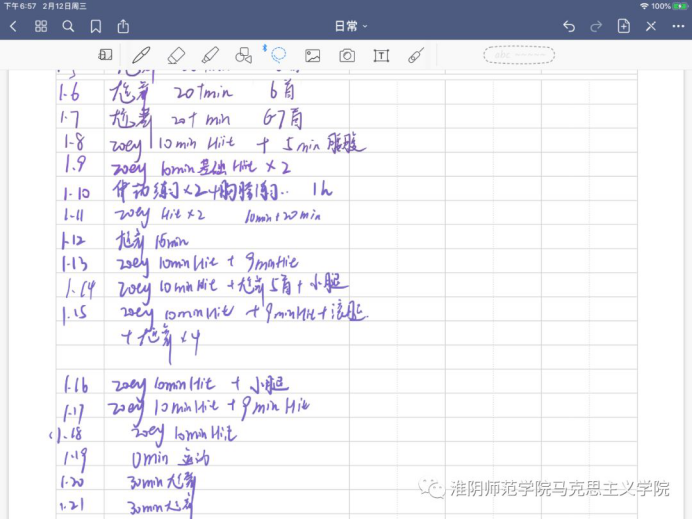 下午6:57 2月12日周三
100%
日常
1.6 尬舞 20+min 6首
1.7 尬舞 20+min 6-7首
1.8 zoey 10min Hiit + 5min 腹肌
1.9 zoey 10min基础Hiit ×2
1.10 ×2 1h
1.11 zoey Hiit ×2 10min+20min
1.12 尬舞 15min
1.13 zoey 10min Hiit + 9min Hiit
1.14 zoey 10min Hiit + 尬舞5首 + 小腿
1.15 zoey 10min Hiit + 9min Hiit +
+ 尬舞 ×4
1.16 zoey 10min Hiit + 小腿
1.17 zoey 10min Hiit + 9min Hiit
1.18 zoey 10min Hiit
1.19 0min 运动
1.20 30min 尬舞
1.21 30min 尬舞
淮阴师范学院马克思主义学院